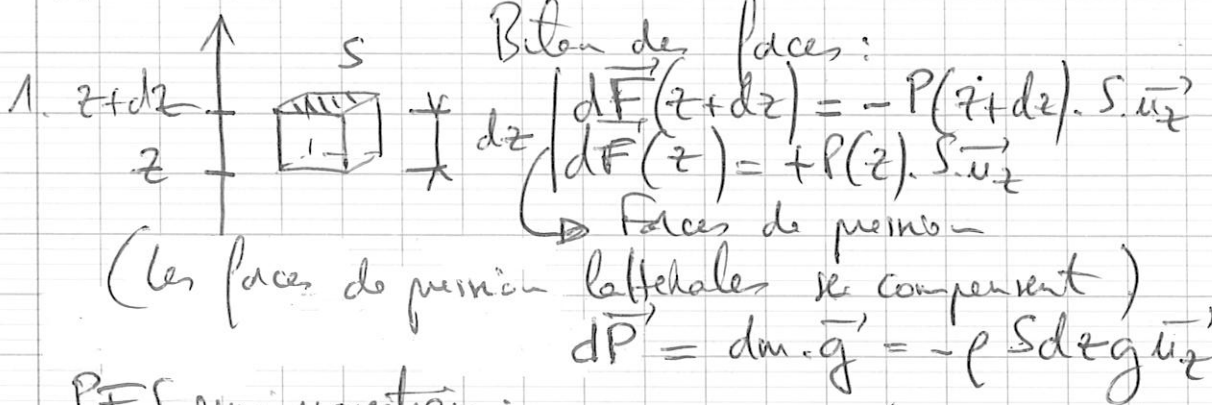 Bilan des forces :
1. z+dz dz S dF⃗(z+dz) = - P(z+dz). S. u⃗z
z dF⃗(z) = + P(z). S. u⃗z
↳ Forces de pression
(les forces de pression lattérales se compensent)
dP⃗ = dm . g⃗ = - ρ S dz g u⃗z